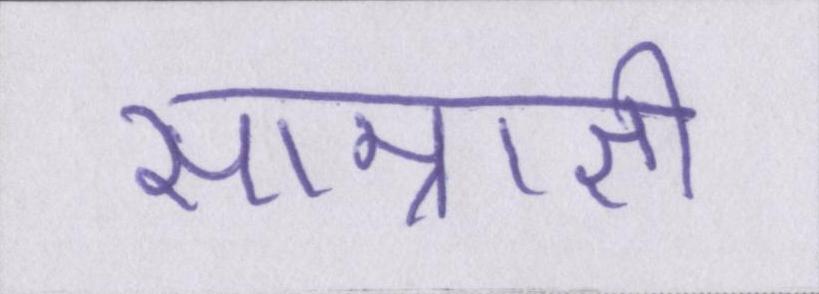 साम्राज्ञी